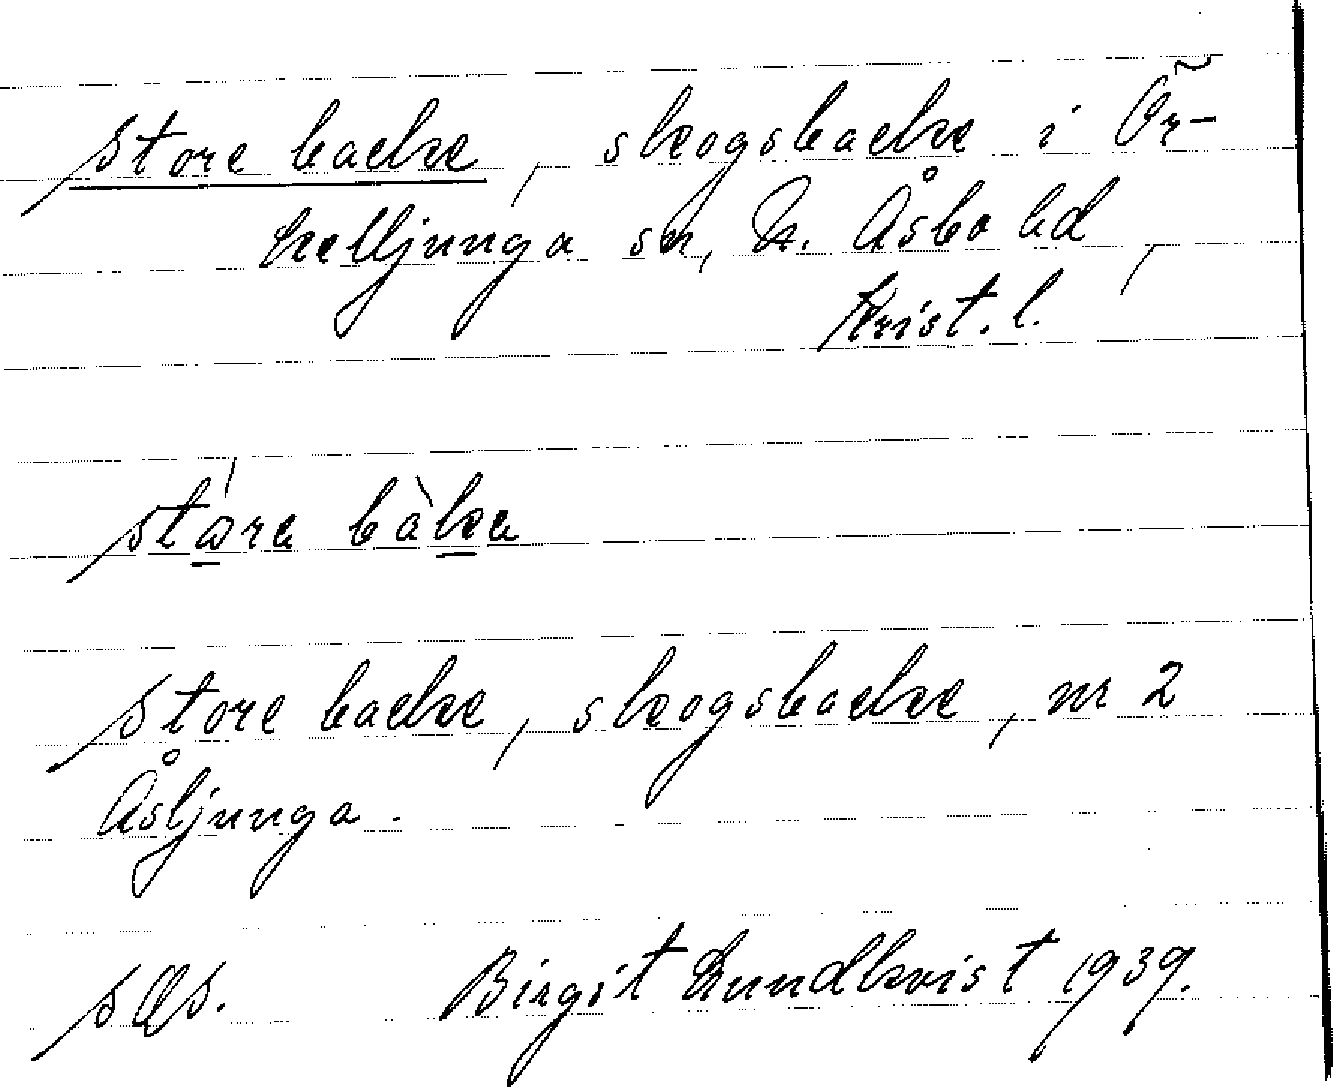 Store backe, skogsbacke i Ör-
kelljunga sn, N. Åsbo hd,
Krist. l.
stɷ́ra bàka
Store backe, skogsbacke, nr 2
Åsljunga.
SOS. Birgit Lundkvist 1939.